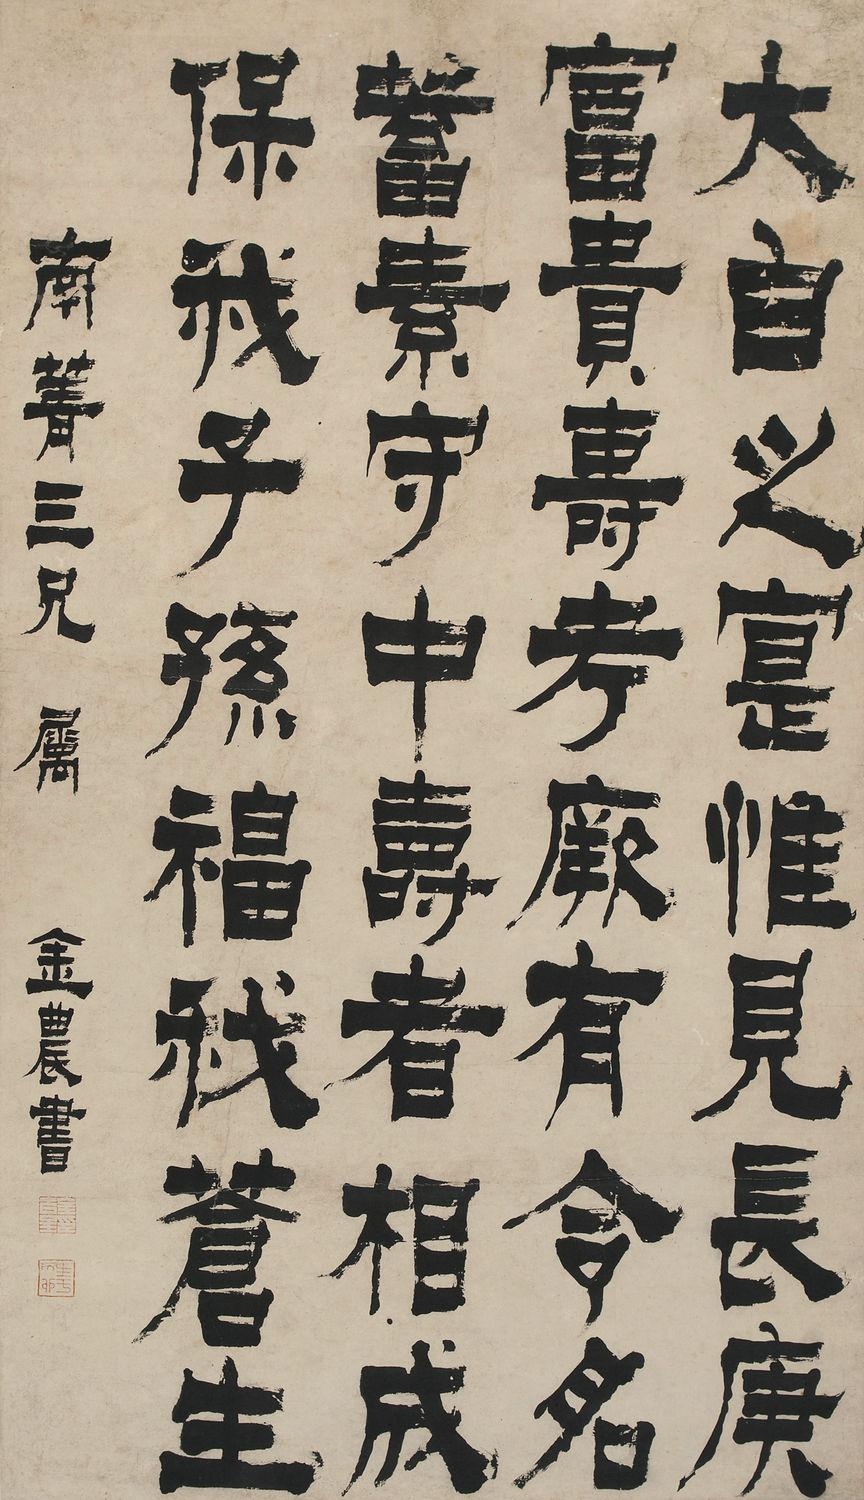 大白之寔惟見長庚
富貴壽考厥有令名
蓄素守中壽者相成
保我子孫福我蒼生
南菁三兄 屬
金農書